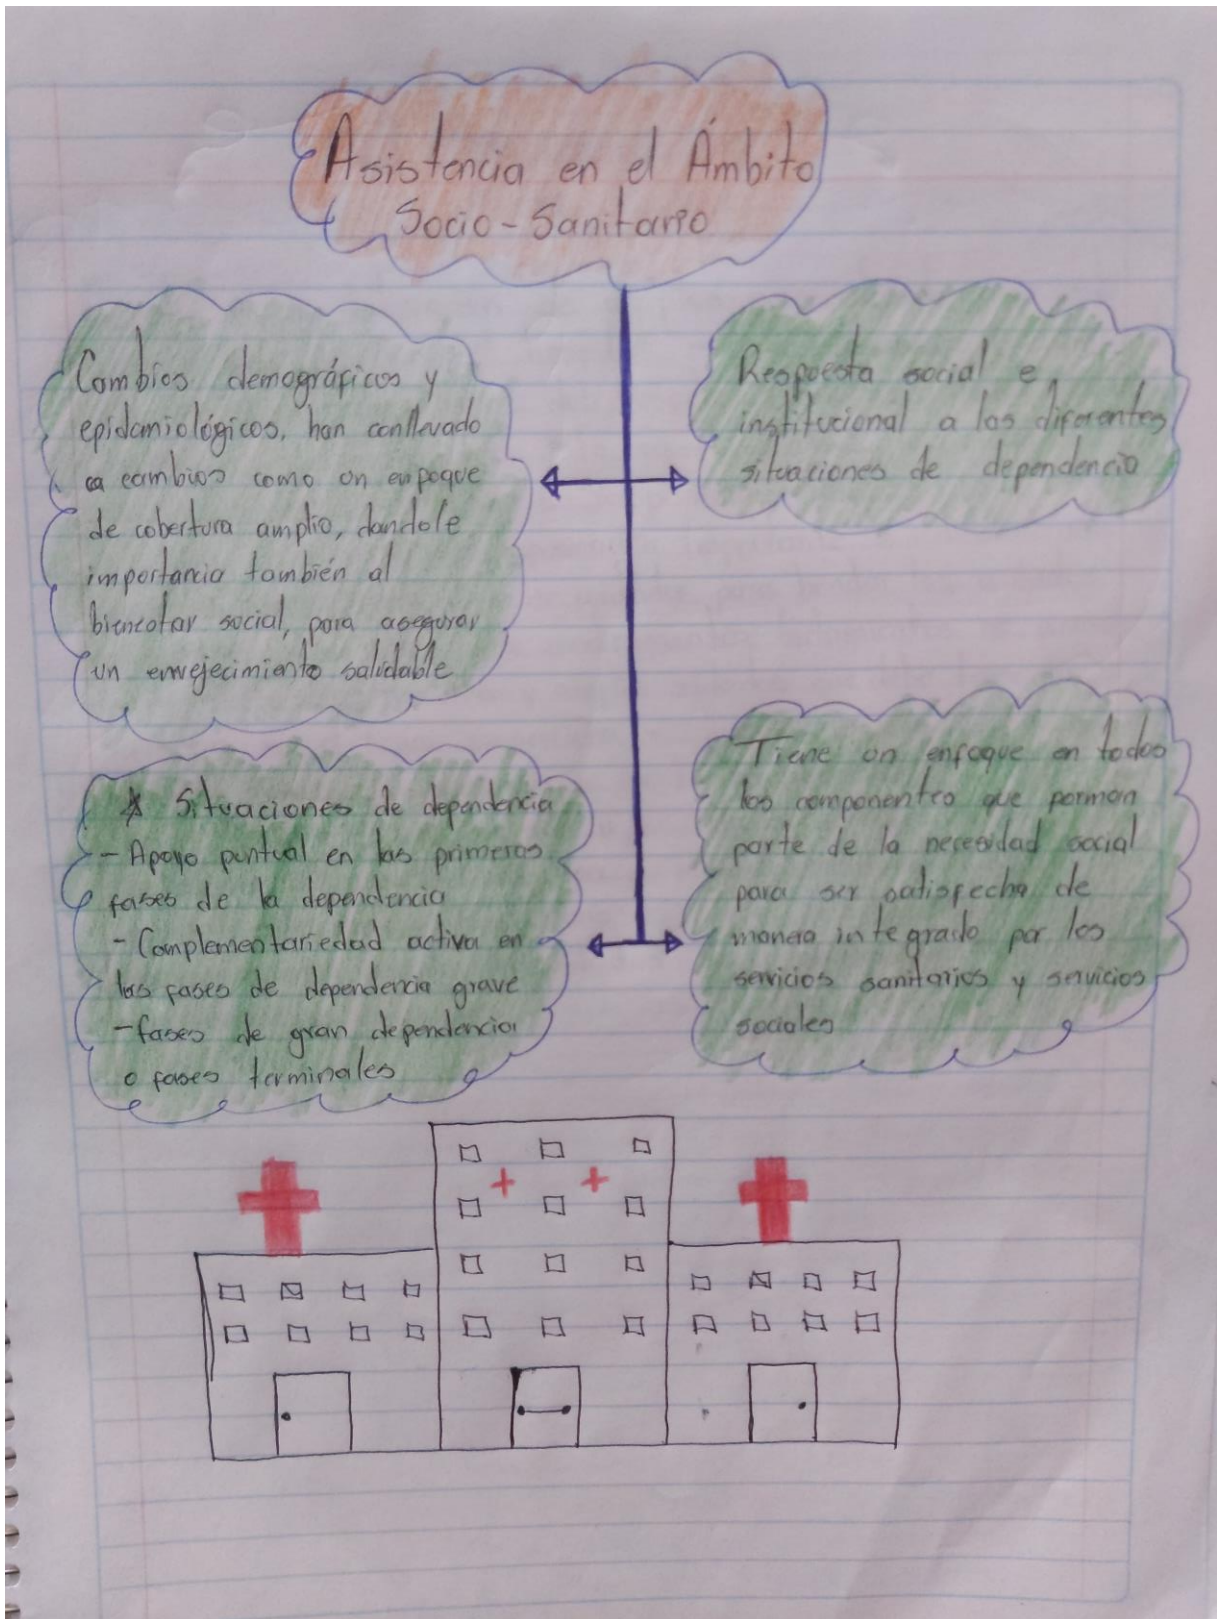 Asistencia en el Ámbito
Socio-Sanitario
Cambios demográficos y
epidemiológicos, han conllevado
a cambios como un enfoque
de cobertura amplio, dandole
importancia también al
bienestar social, para asegurar
un envejecimiento saludable
Respuesta social e
institucional a las diferentes
situaciones de dependencia
* Situaciones de dependencia
- Apoyo puntual en las primeras
fases de la dependencia
- Complementariedad activa en
las fases de dependencia grave
- fases de gran dependencia
o fases terminales
Tiene un enfoque en todos
los componentes que forman
parte de la necesidad social
para ser satisfecha de
manera integrado por los
servicios sanitarios y servicios
sociales